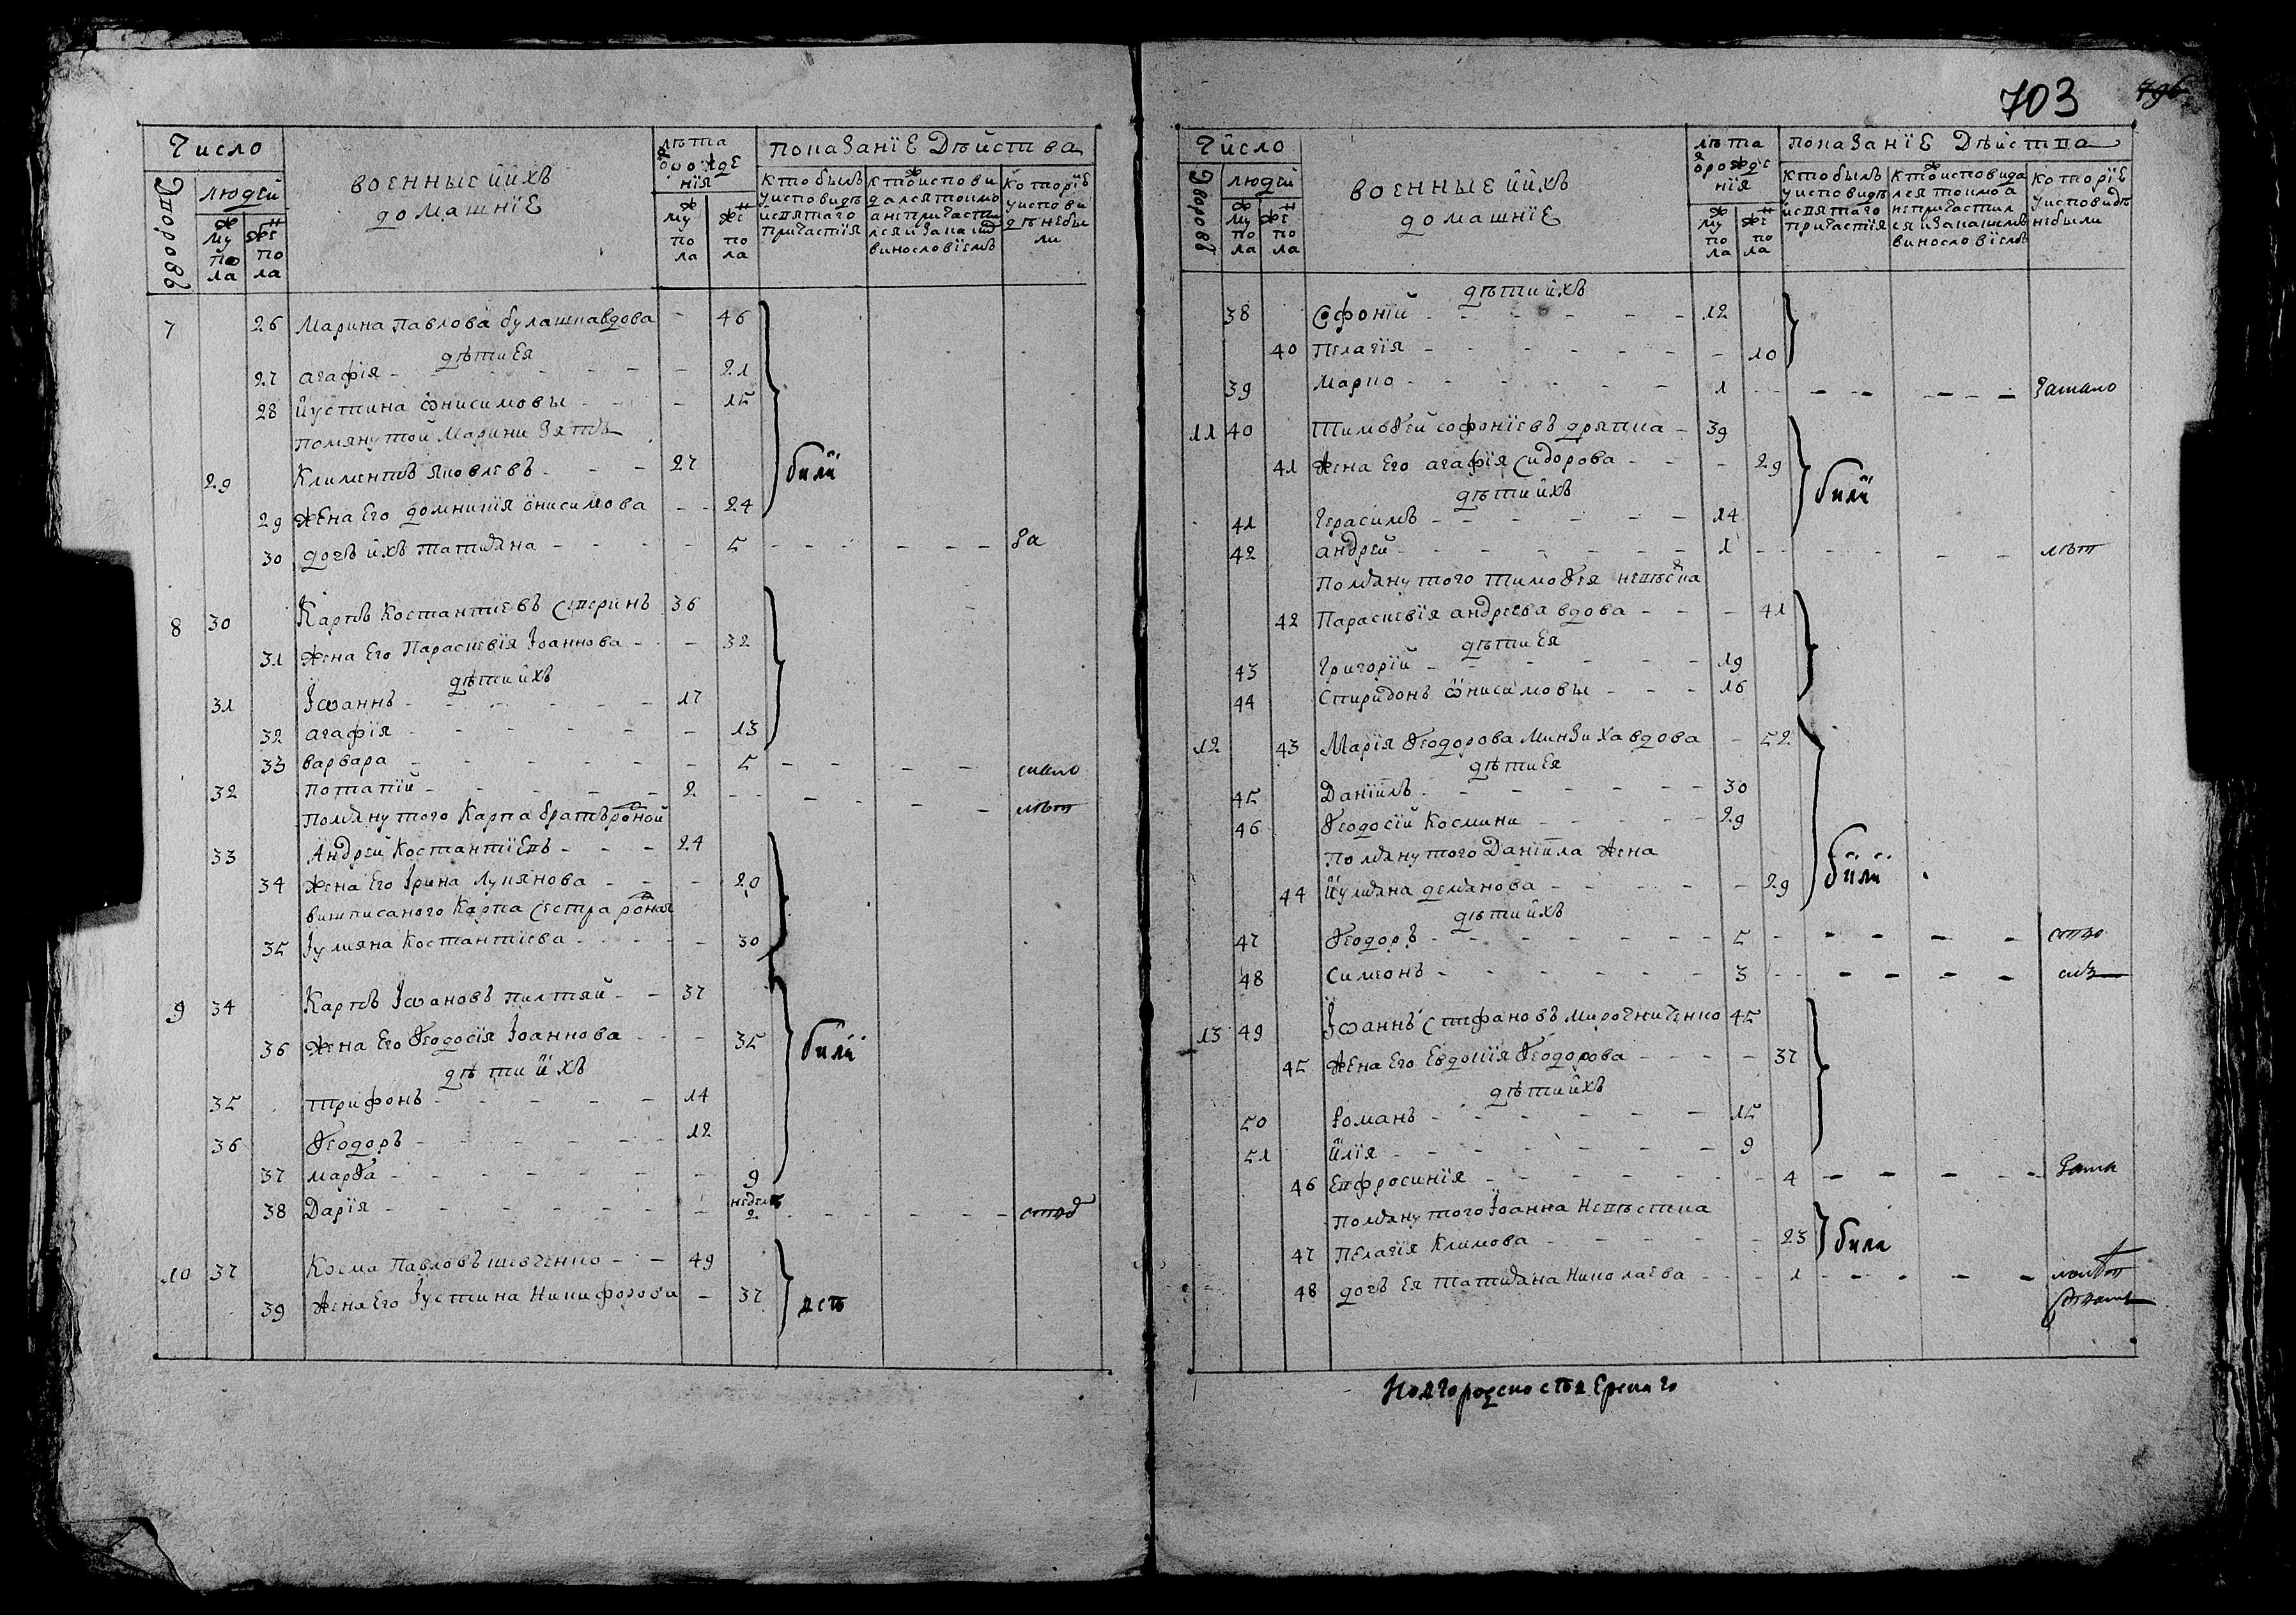 703 796
Число
Дворовъ
людей
муж пола
жен пола
военные и ихъ домашнїе
лѣта ѿ рождения
муж пола
жен пола
показанїе дѣйства
кто былъ у исповѣди и святаго причастїя
кто исповидался токмо а не причастился и за каким винословїемъ
которїе у исповиди не были
7 26 Марина Павлова булашка вдова - 46
дѣти Ея
27 агафїя - 21
28 Иустина Ѡнисимовы - 15
помянутой Марини зять
29 Климентъ Яковлевъ - 27
били
29 жена Его домникїя Онисимова - 24
30 дочь ихъ татияна - 5 за
8 30 Карпъ Костантиевъ Северинъ 36
31 жена Его Параскевїя Іоаннова - 32
дѣти ихъ
31 Іѡаннъ - 17
32 агафїя - 13
33 варвара - 5
32 потапїй - 2
помянутого Карпа братъ родной
33 Андрей Костантїевъ - 24
34 жена Его Ірина Лукянова - 20
вишписаного Карпа сестра родная
35 Іулияна Костантиева - 30
9 34 Карпъ Іѡановъ пилтяй - 37
36 жена Его Ѳеодосїя Іоаннова - 35
били
дѣти ихъ
35 трифонъ - 14
36 Ѳеодоръ - 12
37 марѳа - 9
38 Дарїя - недель 2
10 37 Косма Павловъ шевченко - 49
39 жена Его Іустина Никифорова - 37
Число
Дворовъ
людей
муж пола
жен пола
военные и ихъ домашнїе
лѣта ѿ рожде нїя
муж пола
жен пола
показанїе дѣйства
кто былъ у исповидѣ и святаго причастїя
кто исповидался токмо а не причастился и за какимъ винословїемъ
которїе у исповидѣ не были
дѣти ихъ
38 Софонїй - 12
40 Пелагїя - 10
39 марко - 1
11 40 Тимоѳей софонїевъ дряпка - 39
41 жена Его агафїя Сидорова - 29
били
дѣти ихъ
41 Герасимъ - 14
42 андрей - 1 лѣт
помянутого тимоѳея невѣстка
42 Параскевїя андреева вдова - 41
дѣти Ея
43 Григорїй - 19
44 Спиридонъ Ѡнисимовы - 16
12 43 Марїя Ѳеодорова Минзиха вдова - 52
дѣти Ея
45 Данїилъ - 30
46 Ѳеодосїй Космини - 29
помянутого Данїила жена
44 Иулияна демянова - 29
били
дѣти ихъ
47 Ѳеодоръ - 5
48 Симеонъ - 3
13 49 Іѡаннъ Стефановъ Мирочниченко 45
45 жена Его Евдокїя Ѳеодорова - 37
дѣти ихъ
50 Романъ - 15
51 Илїя - 9
46 Евфросинїя - 4
помянутого Іоанна Невѣстка
47 Пелагїя Климова - 23 била
48 дочь Ея татияна Николаева - 1